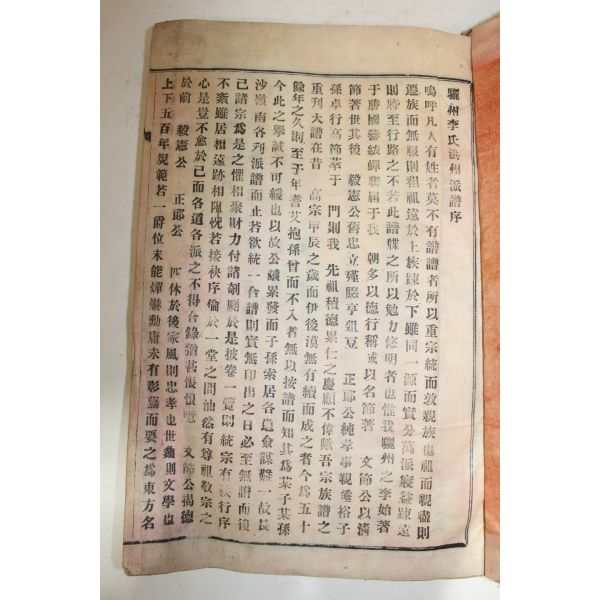 驪州李氏洪州派譜序
嗚呼凡人有姓者莫不有譜譜者所以重宗統而敦親族也祖而親盡則
遷族而無服則程祖遠於上族踈於下雖同一源而實分萬派寢益踈遠
則將至行路之不若此譜牒之所以勉力修明者也惟我驪州之李始著
于勝國簪紱蟬聯屆于我 朝多以德行稱或以名節著 文節公以淸
節著世其後 毅憲公舊忠立殣腏亨俎豆 正郎公純孝事親垂裕子
孫卓行高節萃于 門則我 先祖積德累仁之慶顧不偉歟吾宗族譜之
重刊大譜在昔 高宗甲辰之歲而伊後漠無有續而成之者今爲五十
餘年之久則至于年耆艾抱孫曾而不入者無以按譜而知其爲某子某孫
今此之擧誠不可緩也以故公議累發而子孫索居各道僉謀難一故長
沙嶺南各刋派譜而止若欲統一合譜則實無印出之日必至無譜而後
已諸宗爲是之懼相聚財力付諸剞劂於是披卷一覽則統宗有秩行序
不紊雖居相遠跡相阻怳若接袂序倫於一堂之間油然有尊祖敬宗之
心是豈不愈於已而各道各派之不得合錄猶甚悵恨噫 文節公揭德
於前 毅憲公 正郎公 匹休於後家風則忠孝也世業則文學也
上下五百年規範若一爵位未能燀爀勳庸未有彰著而要之爲東方名